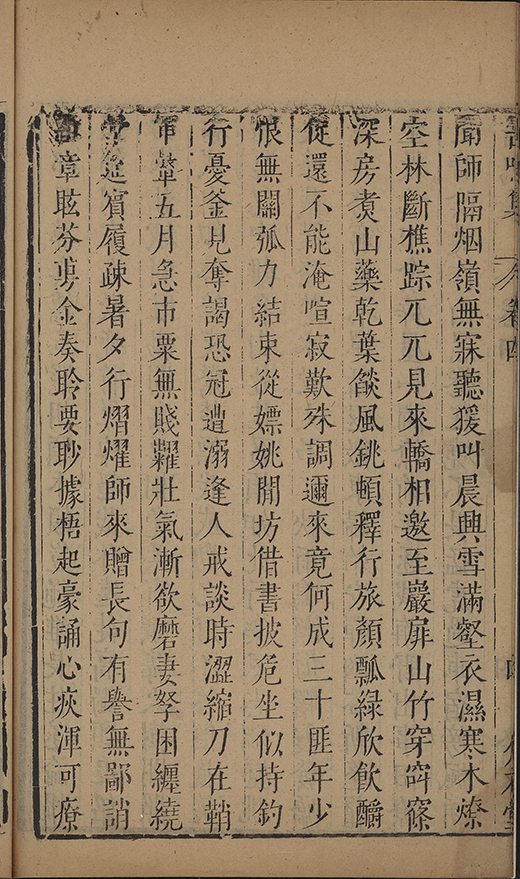 集
卷四
聞師隔烟嶺無寐聽猨叫晨興雪滿壑衣濕寒木燎
空林斷樵踪兀兀見來轎相邀至巖扉山竹穿窅窱
深房煑山藥乾葉燄風銚頓釋行旅顏瓢綠欣飮釂
從還不能淹喧寂歎殊調邇來竟何成三十匪年少
恨無關弧力結束從嫖姚閒坊借書披危坐似持釣
行憂釜見奪謁恐冠遭溺逢人戒談時澀縮刀在鞘
帝輦五月急市粟無賤糶壯氣漸欲磨妻孥困纏繞
堂筵賓履疎暑夕行熠燿師來贈長句有譽無鄙誚
章眩芬葩金奏聆要眇據梧起豪誦心疢渾可療